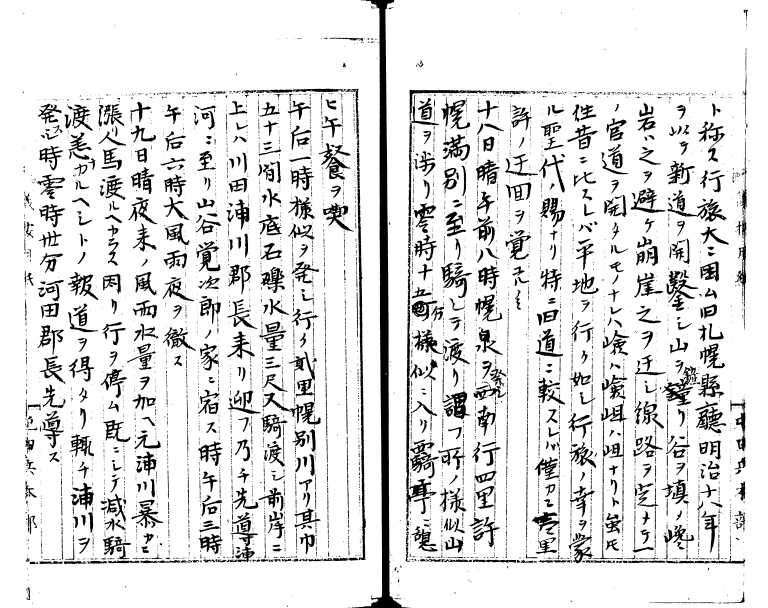 ト称ス行旅大ニ困ム旧札幌縣廳明治十八年
ヲ以テ新道ヲ開鑿シ山ヲ鐘リ谷ヲ填メ巉
岩ハ之ヲ避ケ崩崖之ヲ迂シ線路ヲ定ナ一
ノ官道ヲ開タルモノナレハ嶮ハ嶮岨ハ岨ナリト虽モ
往昔ニ比スレバ平地ヲ行ク如シ行旅ノ幸ヲ蒙
ル聖代ノ賜ナリ特ニ旧道ニ較スレバ僅カニ壱里
許ノ迂回ヲ覚フルノミ
十八日晴午前八時幌泉ヲ発シ西南行四里許
幌満別ニ至リ騎シテ渡リ謂フ所ノ様似山
道ヲ渉リ零時十五分様似ニ入リ驛亭ニ憩
ヒ午餐ヲ喫ス
午后一時様似ヲ発シ行ク貳里幌別川アリ其巾
五十三間水底石礫水量三尺又騎渡シ前岸ニ
上レハ川田浦川郡長来リ迎フ乃チ先導浦
河ニ至リ山谷覚次郎ノ家ニ宿ス時午后三時
午后六時大風雨夜ヲ徹ス
十九日晴夜来ノ風雨水量ヲ加ヘ元浦川暴カニ
漲リ人馬渡ルヘカラス因リ行ヲ停ム既ニシテ減水騎
渡恙ナカルヘシトノ報道ヲ得タリ輙チ浦川ヲ
発ス時零時卅分河田郡長先導ス